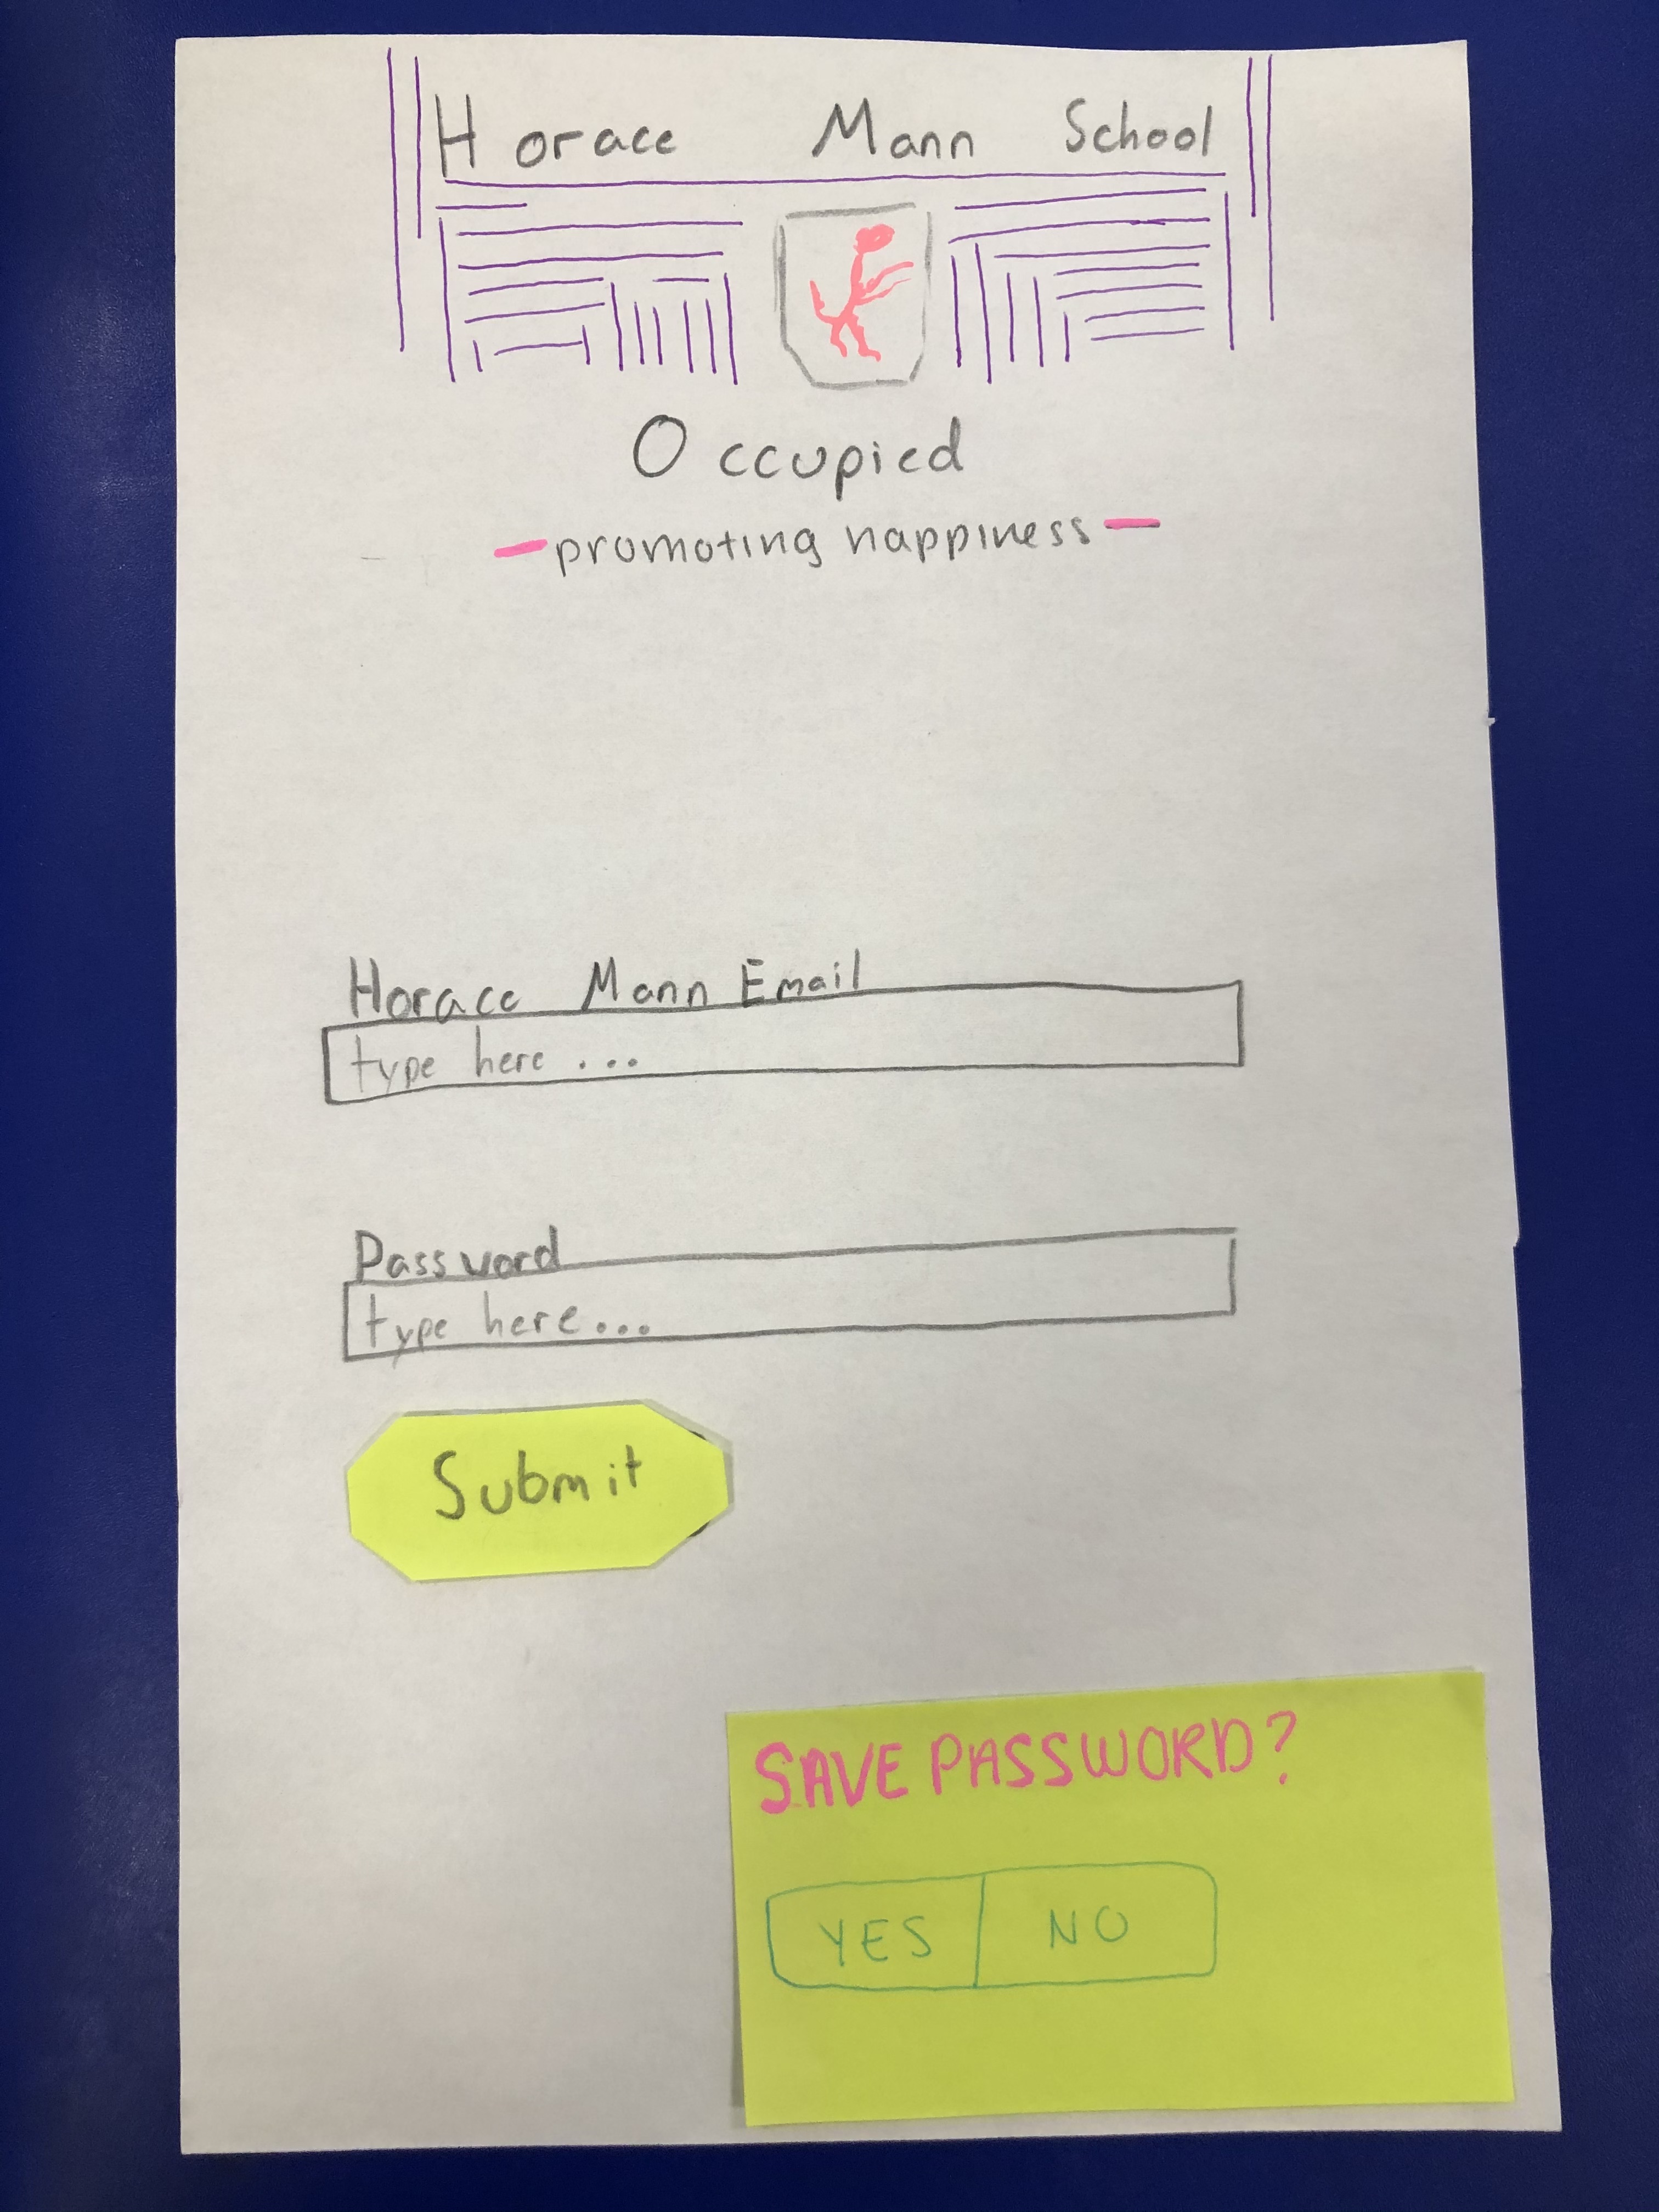 Horace Mann School
Occupied
-promoting nappiness-
Horace Mann Email
type here ...
Password
type here...
Submit
SAVE PASSWORD?
YES NO